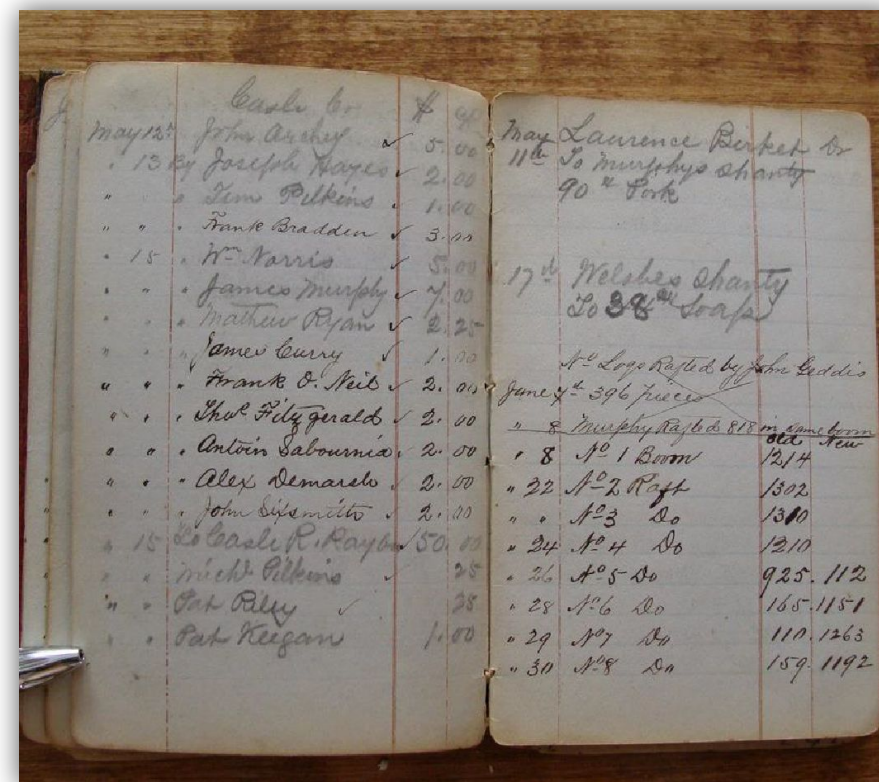 Cash Cr $ cts
May 12th John Archey ✓ 5.00
" 13 By Joseph Hayes ✓ 2.00
" " " Tim Pilkins ✓ 1.00
" " " Frank Bradden ✓ 3.00
" 15 " Wm Norris ✓ 5.00
" " " James Murphy ✓ 7.00
" " " Mathew Ryan ✓ 2.25
" " " James Curry ✓ 1.00
" " " Frank O. Neil ✓ 2.00
" " " Thos Fitzgerald ✓ 2.00
" " " Antoin Sabournia ✓ 2.00
" " " Alex Demarsh ✓ 2.00
" " " John Sixsmith ✓ 2.00
" 15 To Cash R. ✓ 50.00
" " Michl Pilkins ✓ 25
" " Pat Riley ✓ 25
" " Pat Keegan 1.00
May Laurence Birket Dr
11th To Murphys Shanty
90 lb Pork
17th Welshes Shanty
To 38 lb Soap
No Logs Rafted by John Geddis
June 7th 396 pieces
" 8 Murphy Rafted 818 in same boom
Old New
" 8 No 1 Boom 1214
" 22 No 2 Raft 1302
" " No 3 Do 1310
" 24 No 4 Do 1210
" 26 No 5 Do 925.112
" 28 No 6 Do 165.1151
" 29 No 7 Do 110.1263
" 30 No 8 Do 159.1192